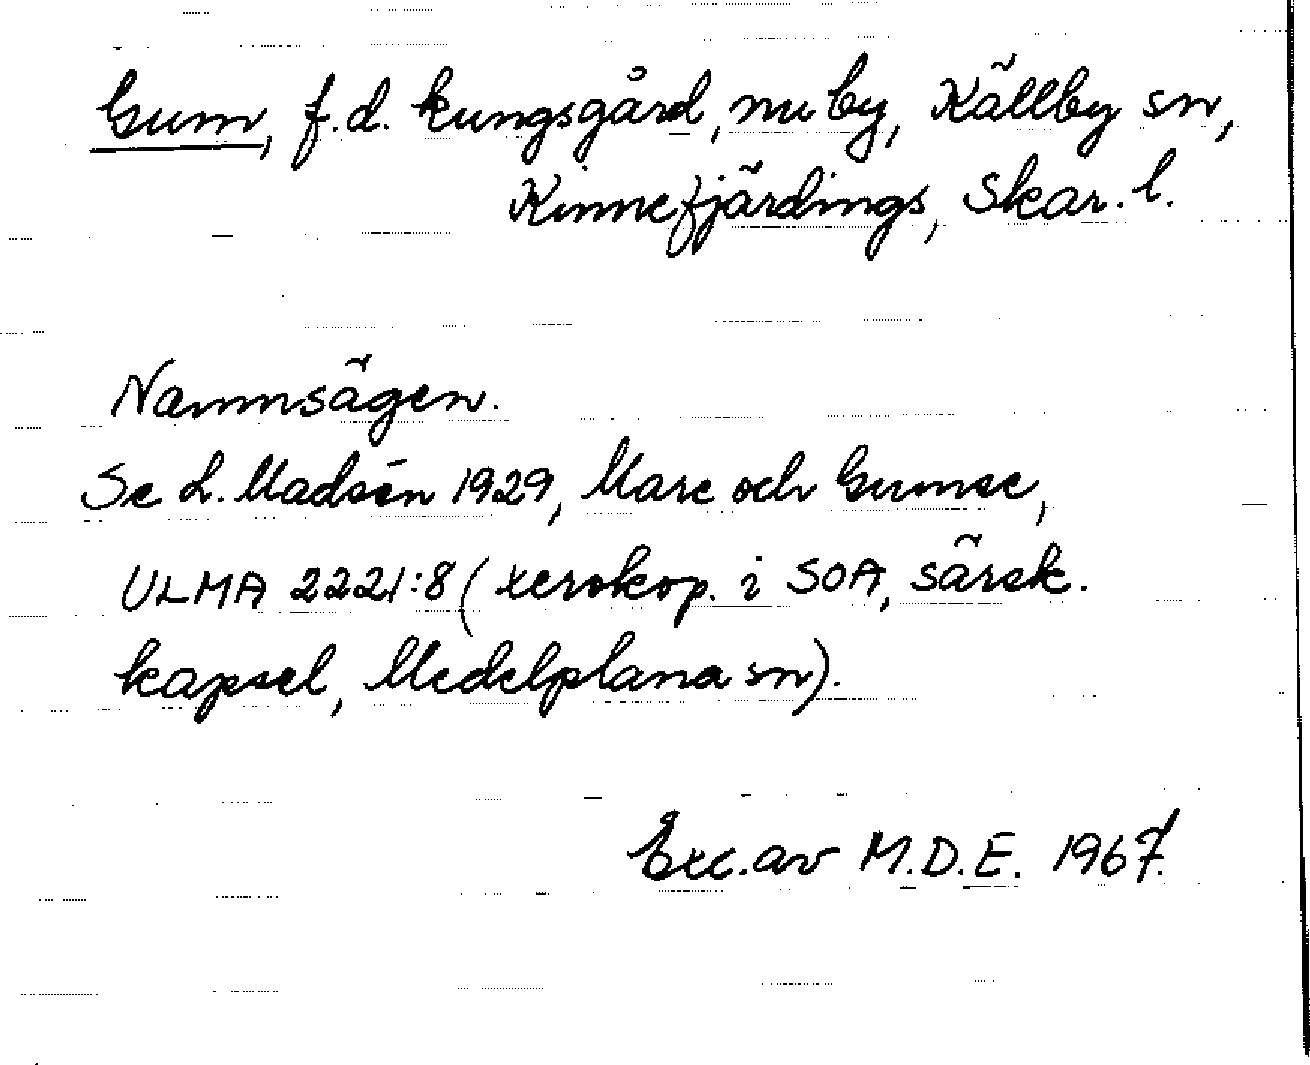 Gum, f.d. kungsgård, nu by, Källby sn,
Kinnefjärdings, Skar. l.
Namnsägen.
Se L. Madsén 1929, Mare och Gumse,
ULMA 2221:8 (xerokop. i SOA, särsk.
kapsel, Medelplana sn).
Exc. av M.D.E. 1967.